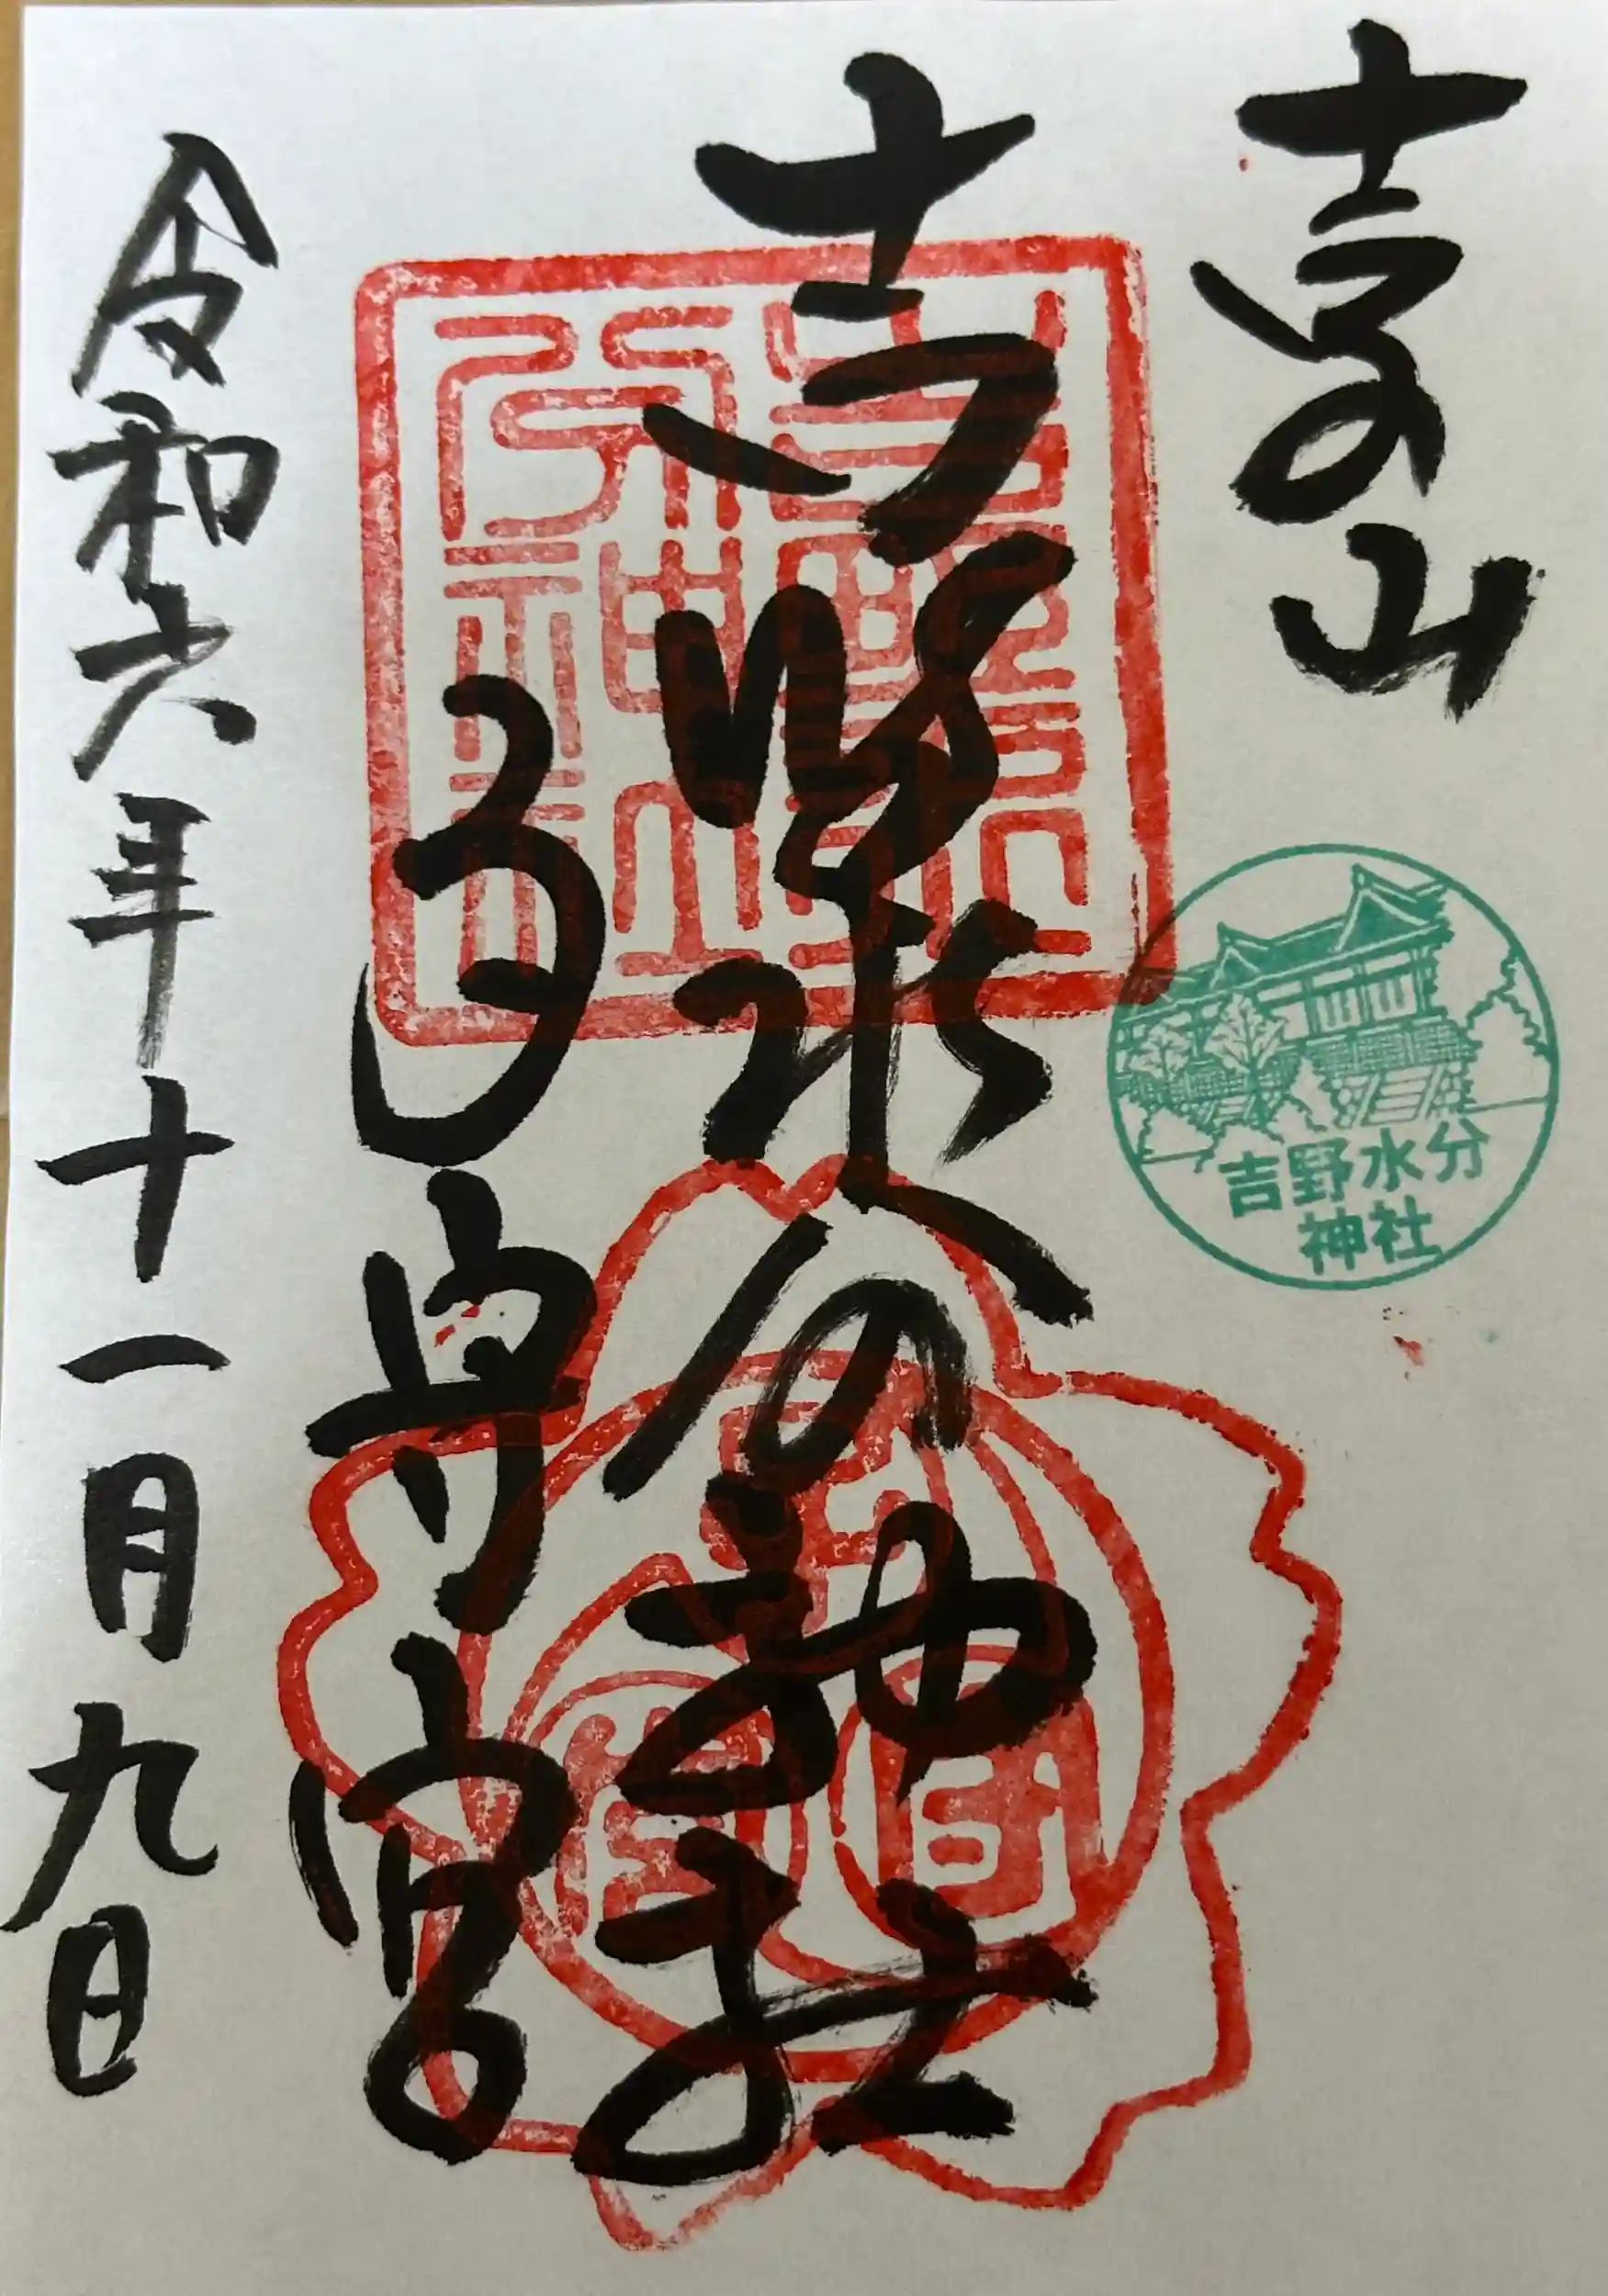 吉野山
吉野水分
神社
吉野水分神社
子守宮
令和六年十一月九日